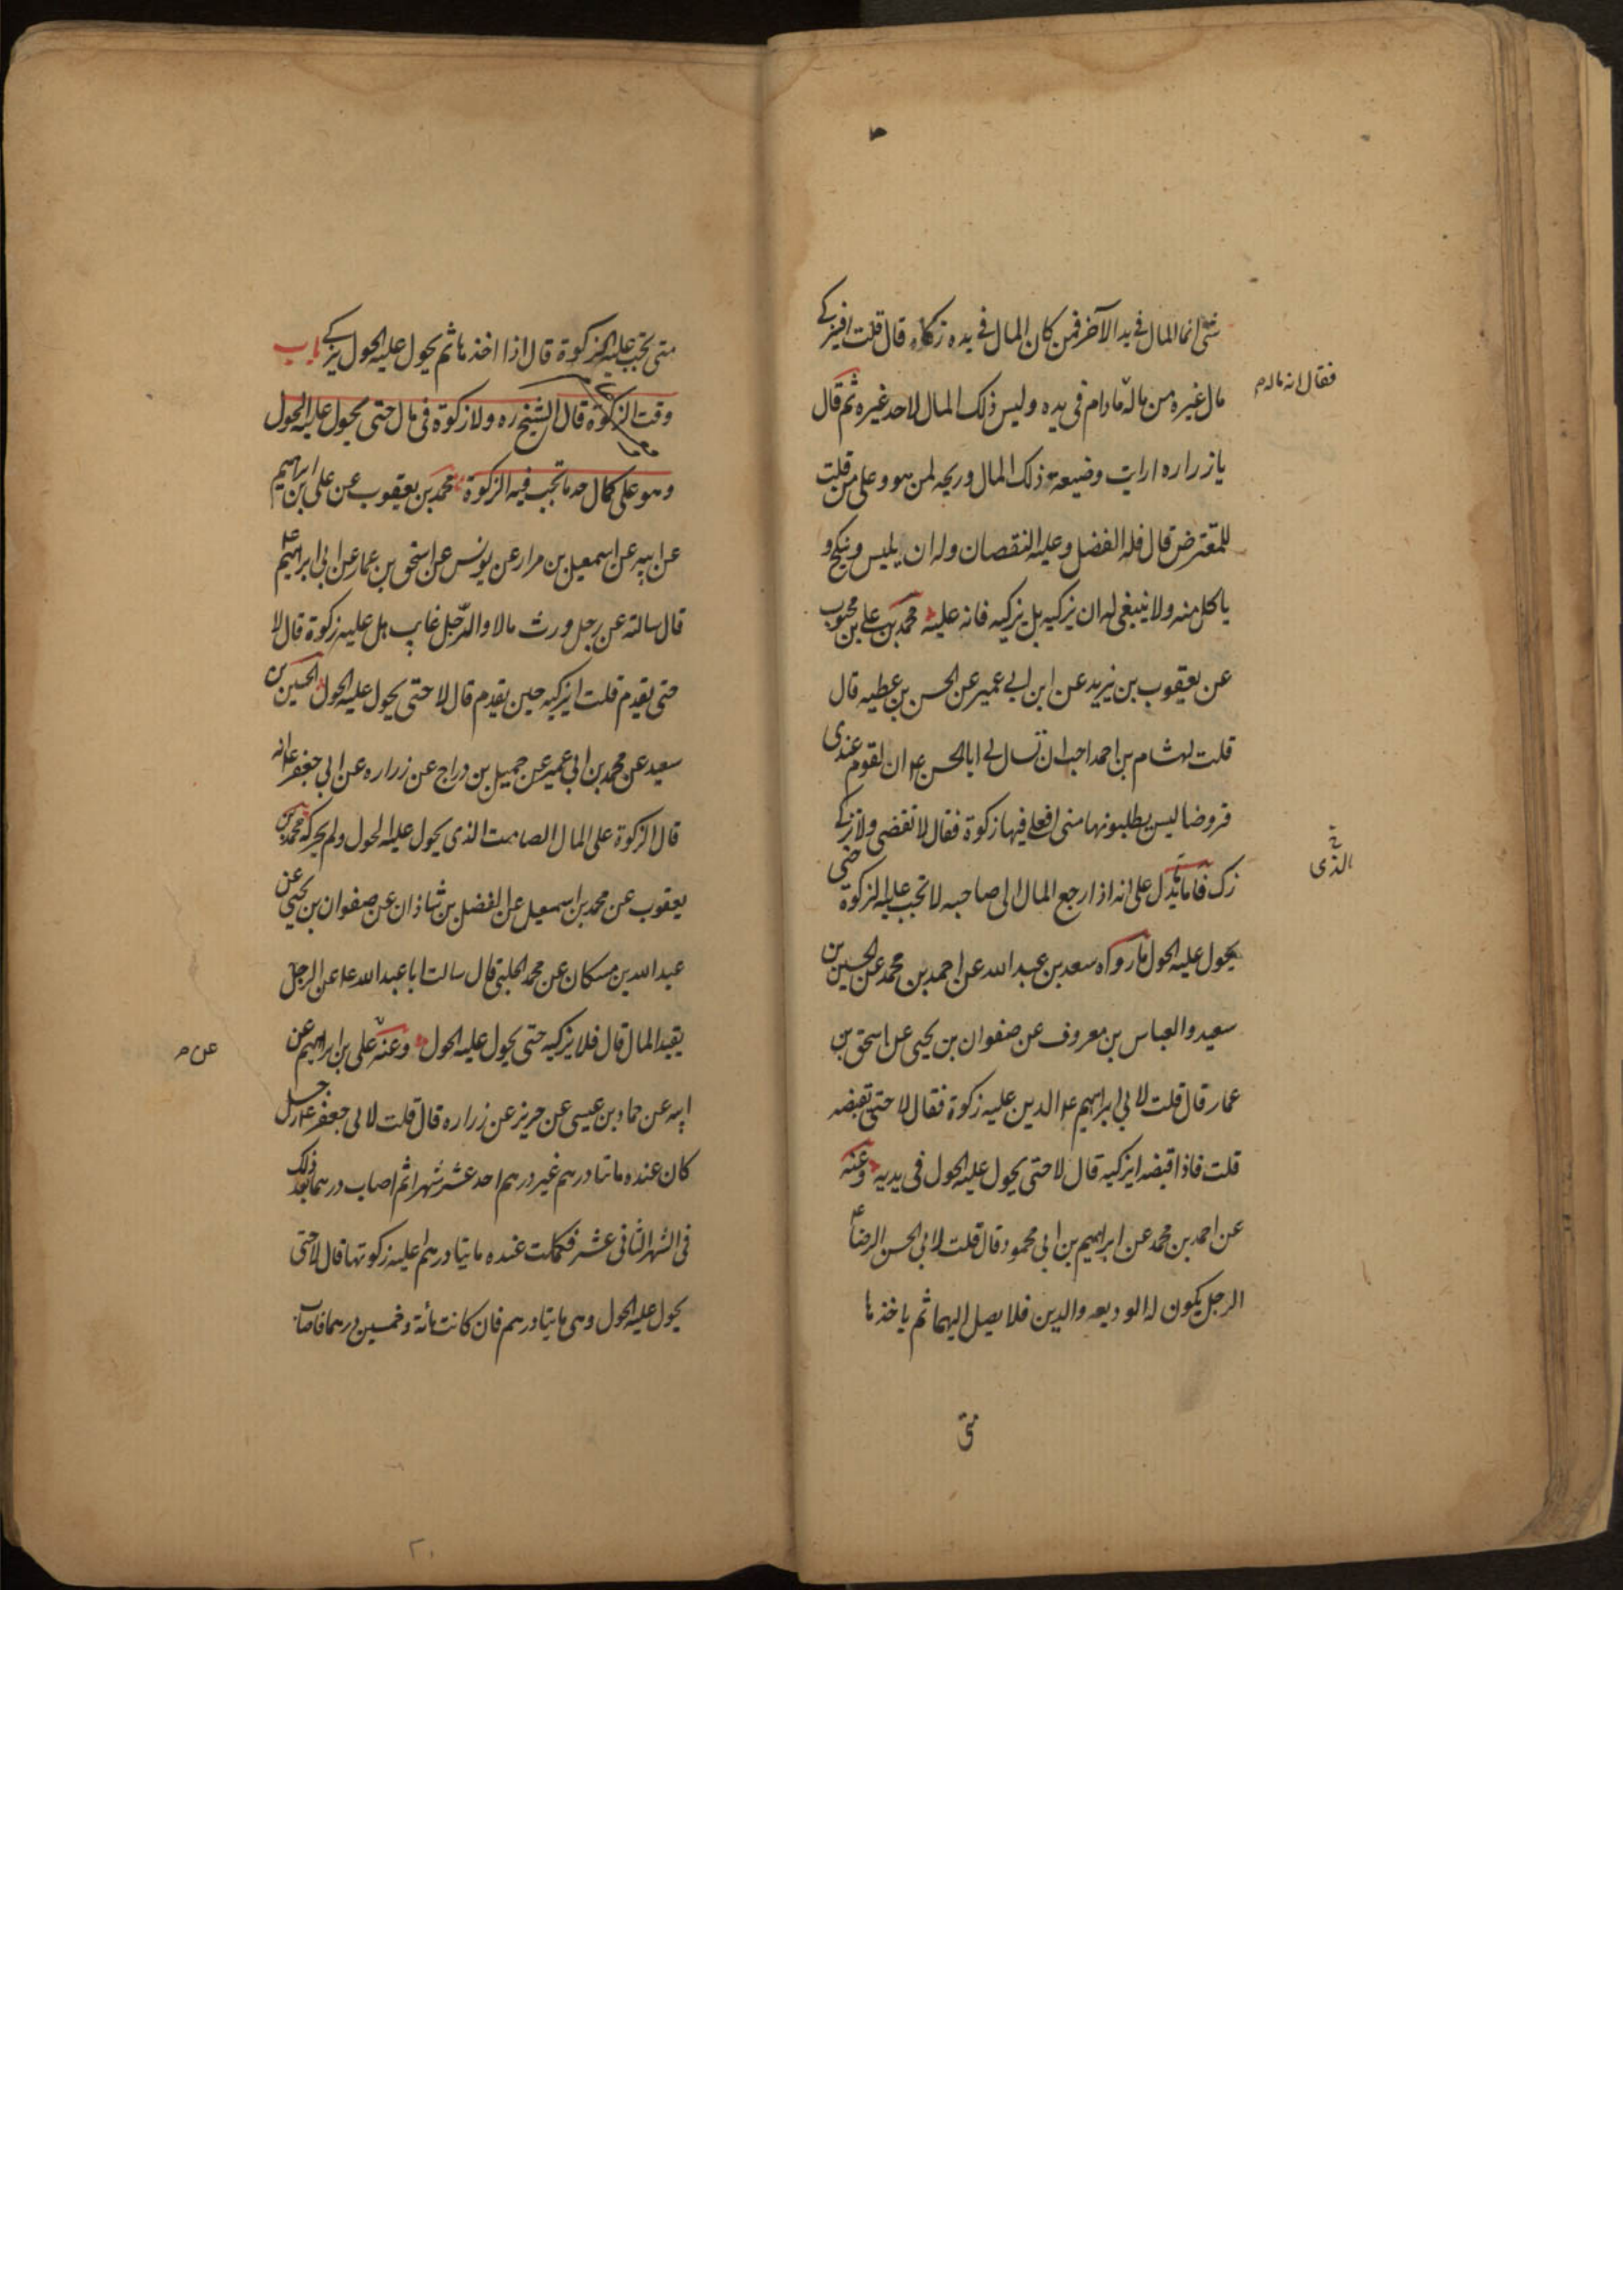 شئ انما المال فی ید الآخر فمن کان المال فی یده زکاه قال قلت افیزکی
مال غیره من ماله مادام فی یده ولیس ذلک المال لاحد غیره ثم قال
فقال انه ماله م
یا زراره ارایت وضیعة ذلک المال وربحه لمن هو وعلی من قلت
للمقترض قال فله الفضل وعلیه النقصان وله ان یلبس وینکح و
یاکل منه ولا ینبغی له ان یزکیه بل یزکیه فانه علیه محمد بن علی بن محبوب
عن یعقوب بن یزید عن ابن ابی عمیر عن الحسن بن عطیه قال
قلت لهشام بن احمد احب ان تسال لی ابا الحسن ع ان لقوم عندی
قروضا لیس یطلبونها منی افعلی فیها زکوة فقال لا تقضی ولا تزکی
زک فاما یدل علی انه اذا رجع المال الی صاحبه لا تجب علیه الزکوة حتی
الذی
یحول علیه الحول مارواه سعد بن عبد الله عن احمد بن محمد عن الحسین بن
سعید والعباس بن معروف عن صفوان بن یحیی عن اسحق بن
عمار قال قلت لابی ابراهیم ع الدین علیه زکوة فقال لا حتی تقبضه
قلت فاذا قبضه ایزکیه قال لا حتی یحول علیه الحول فی یدیه وعنه
عن احمد بن محمد عن ابراهیم بن ابی محمود قال قلت لابی الحسن الرضا ع
الرجل یکون له الودیعه والدین فلا یصل الیهما ثم یاخذهما
متی
متی تجب علیه الزکوة قال اذا اخذهما ثم یحول علیه الحول یزکی باب
وقت الزکوة قال الشیخ ره ولا زکوة فی مال حتی یحول علیه الحول
وهو علی کمال حد ما تجب فیه الزکوة محمد بن یعقوب عن علی بن ابراهیم
عن ابیه عن اسمعیل بن مرار عن یونس عن اسحق بن عمار عن ابی ابراهیم ع
قال سالته عن رجل ورث مالا والرجل غایب هل علیه زکوة قال لا
حتی یقدم قلت ایزکیه حین یقدم قال لا حتی یحول علیه الحول الحسین بن
سعید عن محمد بن ابی عمیر عن جمیل بن دراج عن زراره عن ابی جعفر ع انه
قال الزکوة علی المال الصامت الذی یحول علیه الحول ولم یحرکه محمد بن
یعقوب عن محمد بن اسمعیل عن الفضل بن شاذان عن صفوان بن یحیی عن
عبد الله بن مسکان عن محمد الحلبی قال سالت ابا عبد الله ع عن الرجل
یفید المال قال فلا یزکیه حتی یحول علیه الحول وعنه علی بن ابراهیم عن
عن م
ابیه عن حماد بن عیسی عن حریز عن زراره قال قلت لابی جعفر ع رجل
کان عنده ماتا درهم غیر درهم احد عشر شهرا ثم اصاب درهما بعد ذلک
فی الشهر الثانی عشر فکملت عنده مایتا درهم اعلیه زکوتها قال لا حتی
یحول علیه الحول وهی مایتا درهم فان کانت مائة وخمسین درهما فاصاب